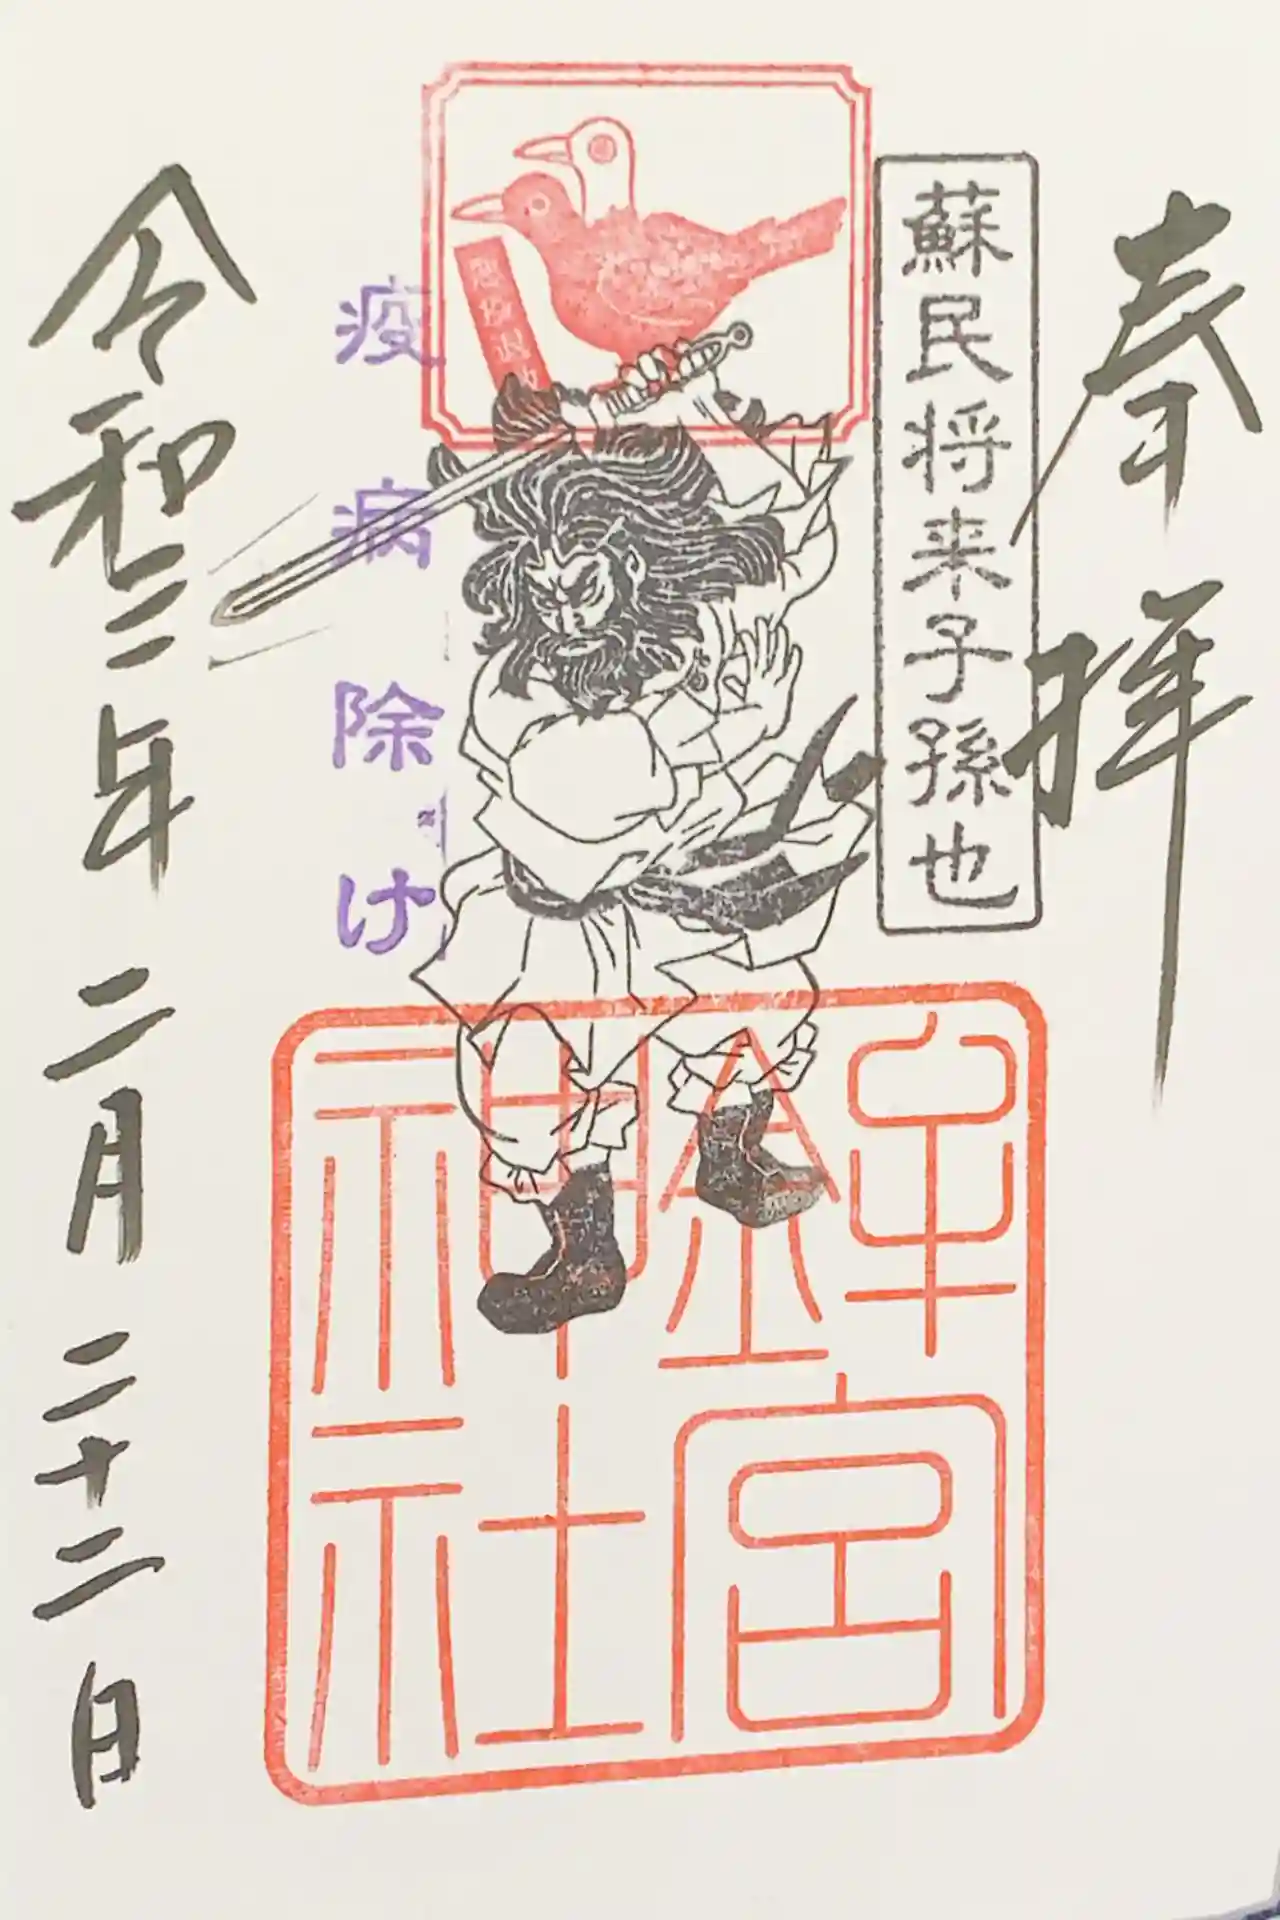 奉拝
蘇民将来子孫也
鉾宮
神社
疫病除け
令和二年二月二十二日